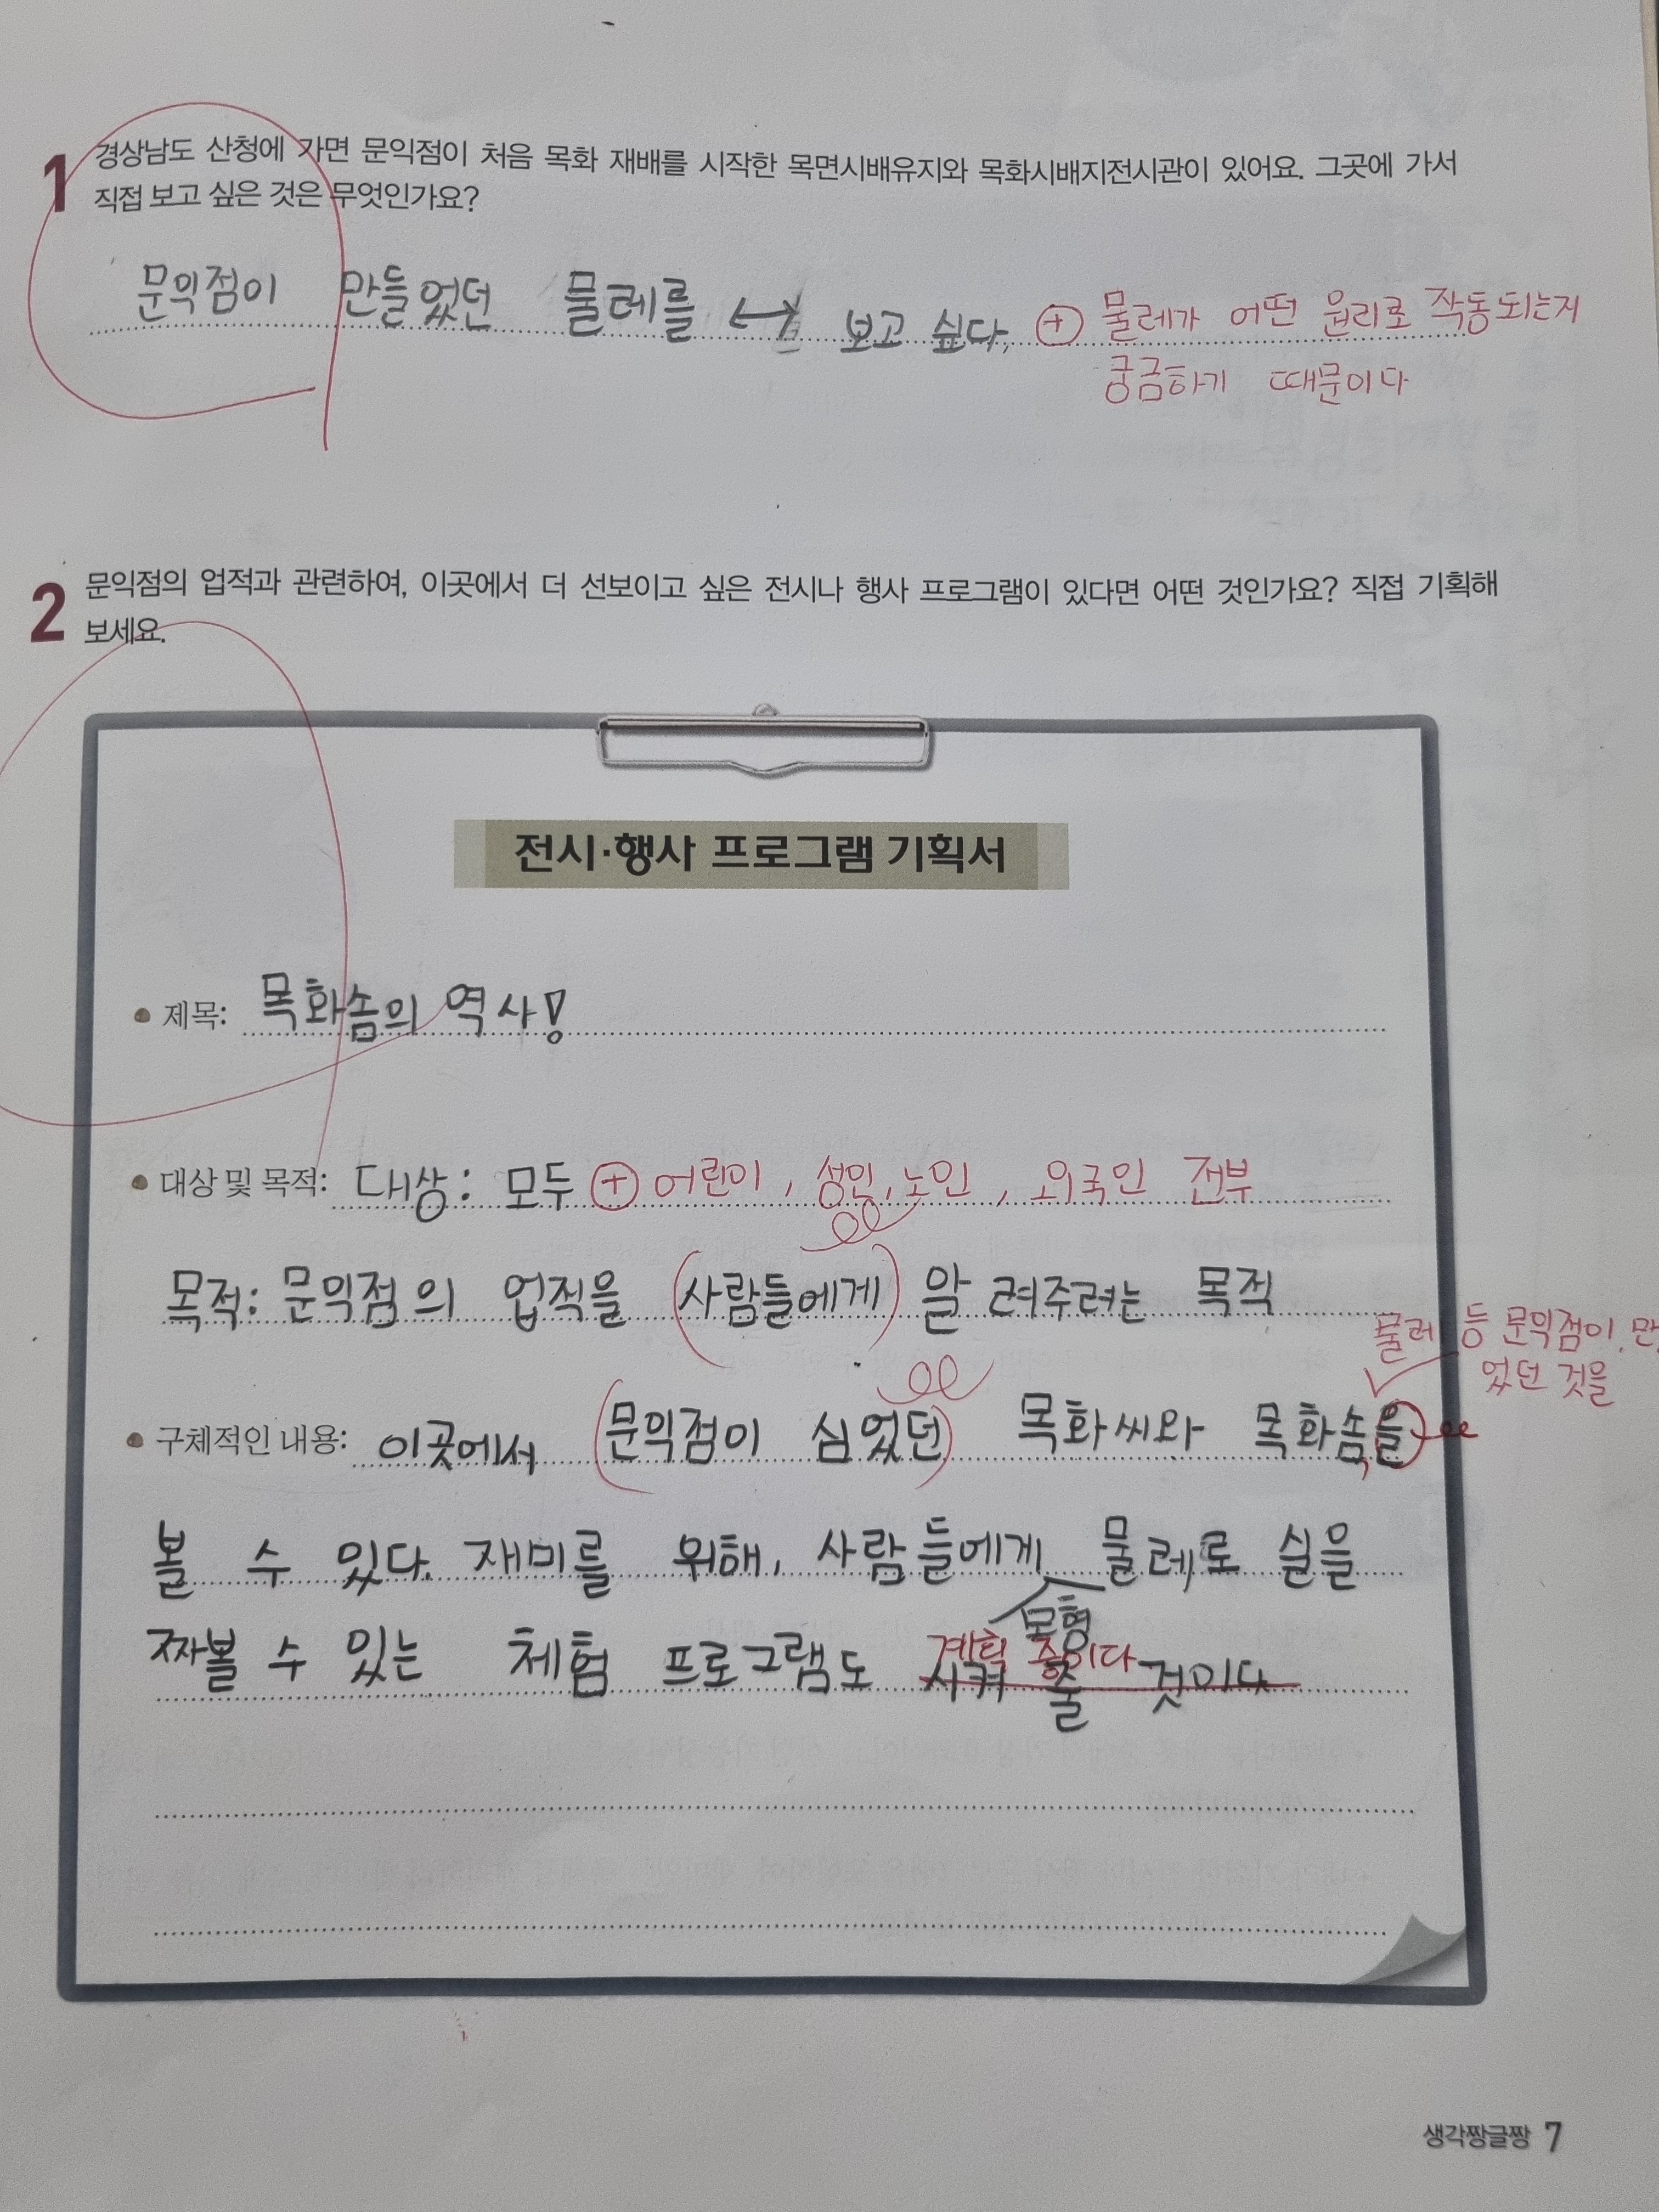 1 경상남도 산청에 가면 문익점이 처음 목화 재배를 시작한 목면시배유지와 목화시배지전시관이 있어요. 그곳에 가서
직접 보고 싶은 것은 무엇인가요?
문익점이 만들었던 물레를 ↔ 보고 싶다. ⊕ 물레가 어떤 원리로 작동되는지
궁금하기 때문이다
2 문익점의 업적과 관련하여, 이곳에서 더 선보이고 싶은 전시나 행사 프로그램이 있다면 어떤 것인가요? 직접 기획해
보세요.
전시·행사 프로그램 기획서
• 제목: 목화솜의 역사!
• 대상 및 목적: 대상: 모두 ⊕ 어린이, 성인, 노인, 외국인 전부
목적: 문익점의 업적을 (사람들에게) 알려주려는 목적
물레 등 문익점이 만
었던 것을
• 구체적인 내용: 이곳에서 (문익점이 심었던) 목화씨와 목화솜을
볼 수 있다. 재미를 위해, 사람들에게 물레로 실을
모형
짜볼 수 있는 체험 프로그램도 시켜 줄 것이다
계획 중이다
생각짱글짱 7